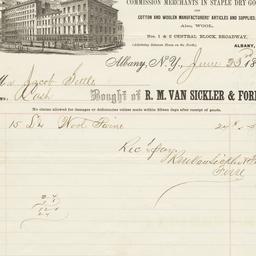 COMMISSION MERCHANTS IN STAPLE DRY GO
AND
COTTON AND WOOLEN MANUFACTURERS' ARTICLES AND SUPPLIES.
Also, WOOL,
Nos. 1 & 2 CENTRAL BLOCK, BROADWAY,
(Adjoining Delavan House on the North.)
ALBANY,
Albany, N.Y., June 23 18
M Jacob Settle
Cash
Bought of R. M. VAN SICKLER & FORE
No claims for damages or deficiencies unless made within fifteen days after receipt of goods.
15 Wool Twine
Rec'd pay